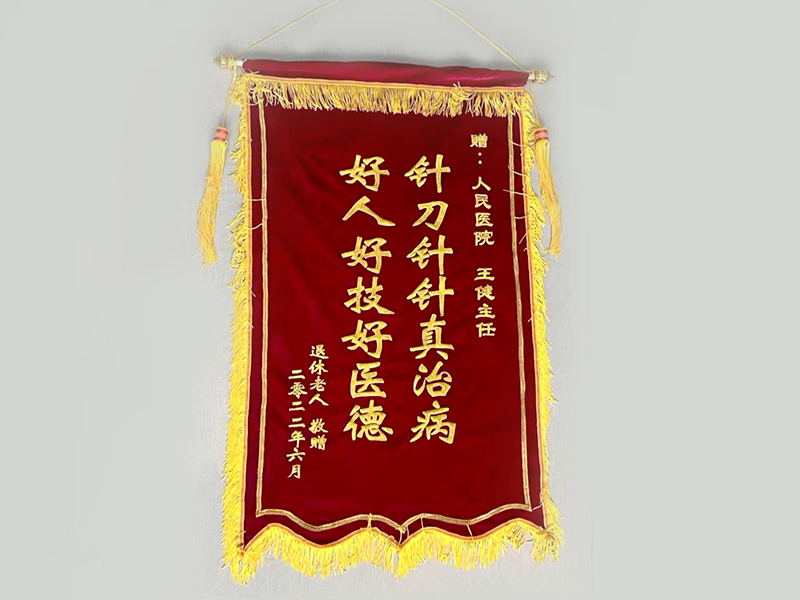 赠：人民医院 王健主任
针刀针针真治病
好人好技好医德
退休老人 敬赠
二零二二年六月